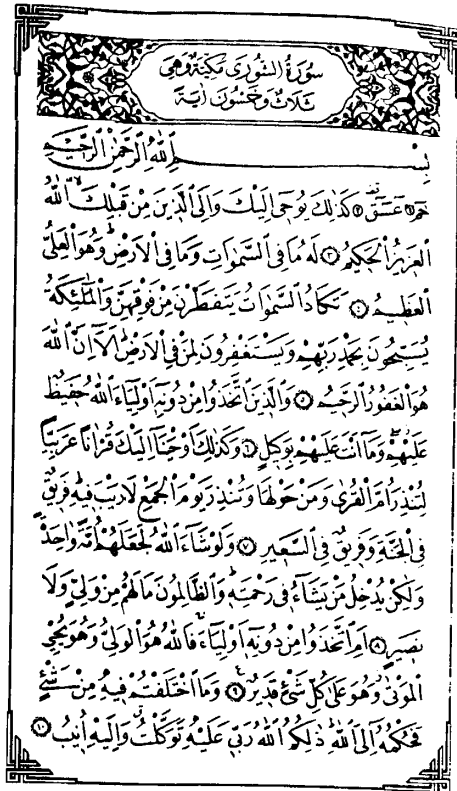 سورة الشورى مكية وهى
ثلاث وخمسون اية
بِسْمِ اللّٰهِ الرَّحْمٰنِ الرَّحِيمِ
حٰمٓ ١ عٓسٓقٓ ٢ كَذٰلِكَ يُوحٖٓى اِلَيْكَ وَاِلَى الَّذٖينَ مِنْ قَبْلِكَۙ اللّٰهُ
الْعَزٖيزُ الْحَكٖيمُ ٣ لَهُ مَا فِى السَّمٰوَاتِ وَمَا فِى الْاَرْضِۜ وَهُوَ الْعَلِىُّ
الْعَظٖيمُ ٤ تَكَادُ السَّمٰوَاتُ يَتَفَطَّرْنَ مِنْ فَوْقِهِنَّ وَالْمَلٰٓئِكَةُ
يُسَبِّحُونَ بِحَمْدِ رَبِّهِمْ وَيَسْتَغْفِرُونَ لِمَنْ فِى الْاَرْضِۜ اَلَٓا اِنَّ اللّٰهَ
هُوَ الْغَفُورُ الرَّحٖيمُ ٥ وَالَّذٖينَ اتَّخَذُوا مِنْ دُونِهٖٓ اَوْلِيَٓاءَ اللّٰهُ حَفٖيظٌ
عَلَيْهِمْۘ وَمَٓا اَنْتَ عَلَيْهِمْ بِوَكٖيلٍ ٦ وَكَذٰلِكَ اَوْحَيْنَٓا اِلَيْكَ قُرْاٰنًا عَرَبِيًّا
لِتُنْذِرَ اُمَّ الْقُرٰى وَمَنْ حَوْلَهَا وَتُنْذِرَ يَوْمَ الْجَمْعِ لَا رَيْبَ فٖيهِۜ فَرٖيقٌ
فِى الْجَنَّةِ وَفَرٖيقٌ فِى السَّعٖيرِ ٧ وَلَوْ شَٓاءَ اللّٰهُ لَجَعَلَهُمْ اُمَّةً وَاحِدَةً
وَلٰكِنْ يُدْخِلُ مَنْ يَشَٓاءُ فٖى رَحْمَتِهٖۜ وَالظَّالِمُونَ مَا لَهُمْ مِنْ وَلِىٍّ وَلَا
نَصٖيرٍ ٨ اَمِ اتَّخَذُوا مِنْ دُونِهٖٓ اَوْلِيَٓاءَۚ فَاللّٰهُ هُوَ الْوَلِىُّ وَهُوَ يُحْيِى
الْمَوْتٰى وَهُوَ عَلٰى كُلِّ شَىْءٍ قَدٖيرٌ ٩ وَمَا اخْتَلَفْتُمْ فٖيهِ مِنْ شَىْءٍ
فَحُكْمُهُٓ اِلَى اللّٰهِۜ ذٰلِكُمُ اللّٰهُ رَبّٖى عَلَيْهِ تَوَكَّلْتُۗ وَاِلَيْهِ اُنٖيبُ ١٠